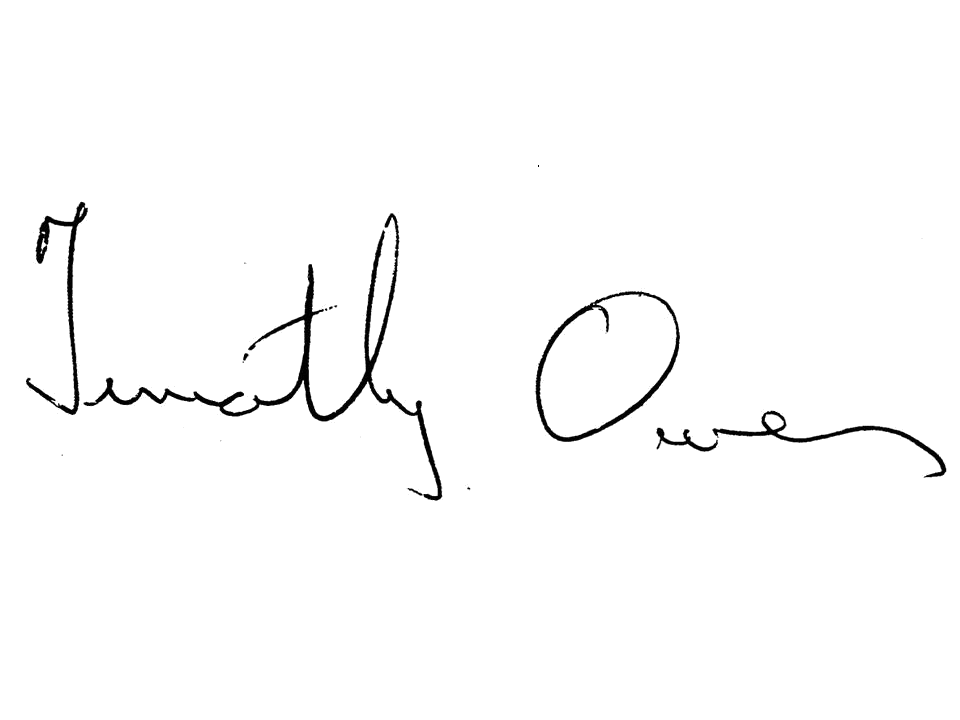 Timothy Owen